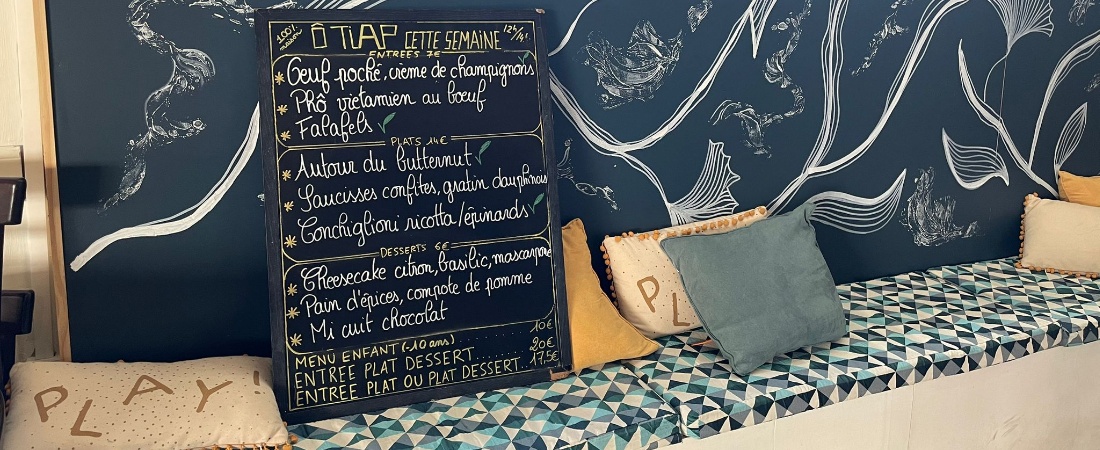 100% maison
Ô TIAP CETTE SEMAINE
ENTRÉES 7€
Œuf poché, crème de champignons
Phô vietamien au bœuf
Falafels
PLATS 14€
Autour du butternut
Saucisses confites, gratin dauphinois
Conchiglioni ricotta/épinards
DESSERTS 6€
Cheesecake citron, basilic, mascarpone
Pain d'épices, compote de pomme
Mi cuit chocolat
MENU ENFANT (-10 ans) ........ 10€
ENTREE PLAT DESSERT ........ 20€
ENTREE PLAT OU PLAT DESSERT... 17,5€
PLAY!
PL